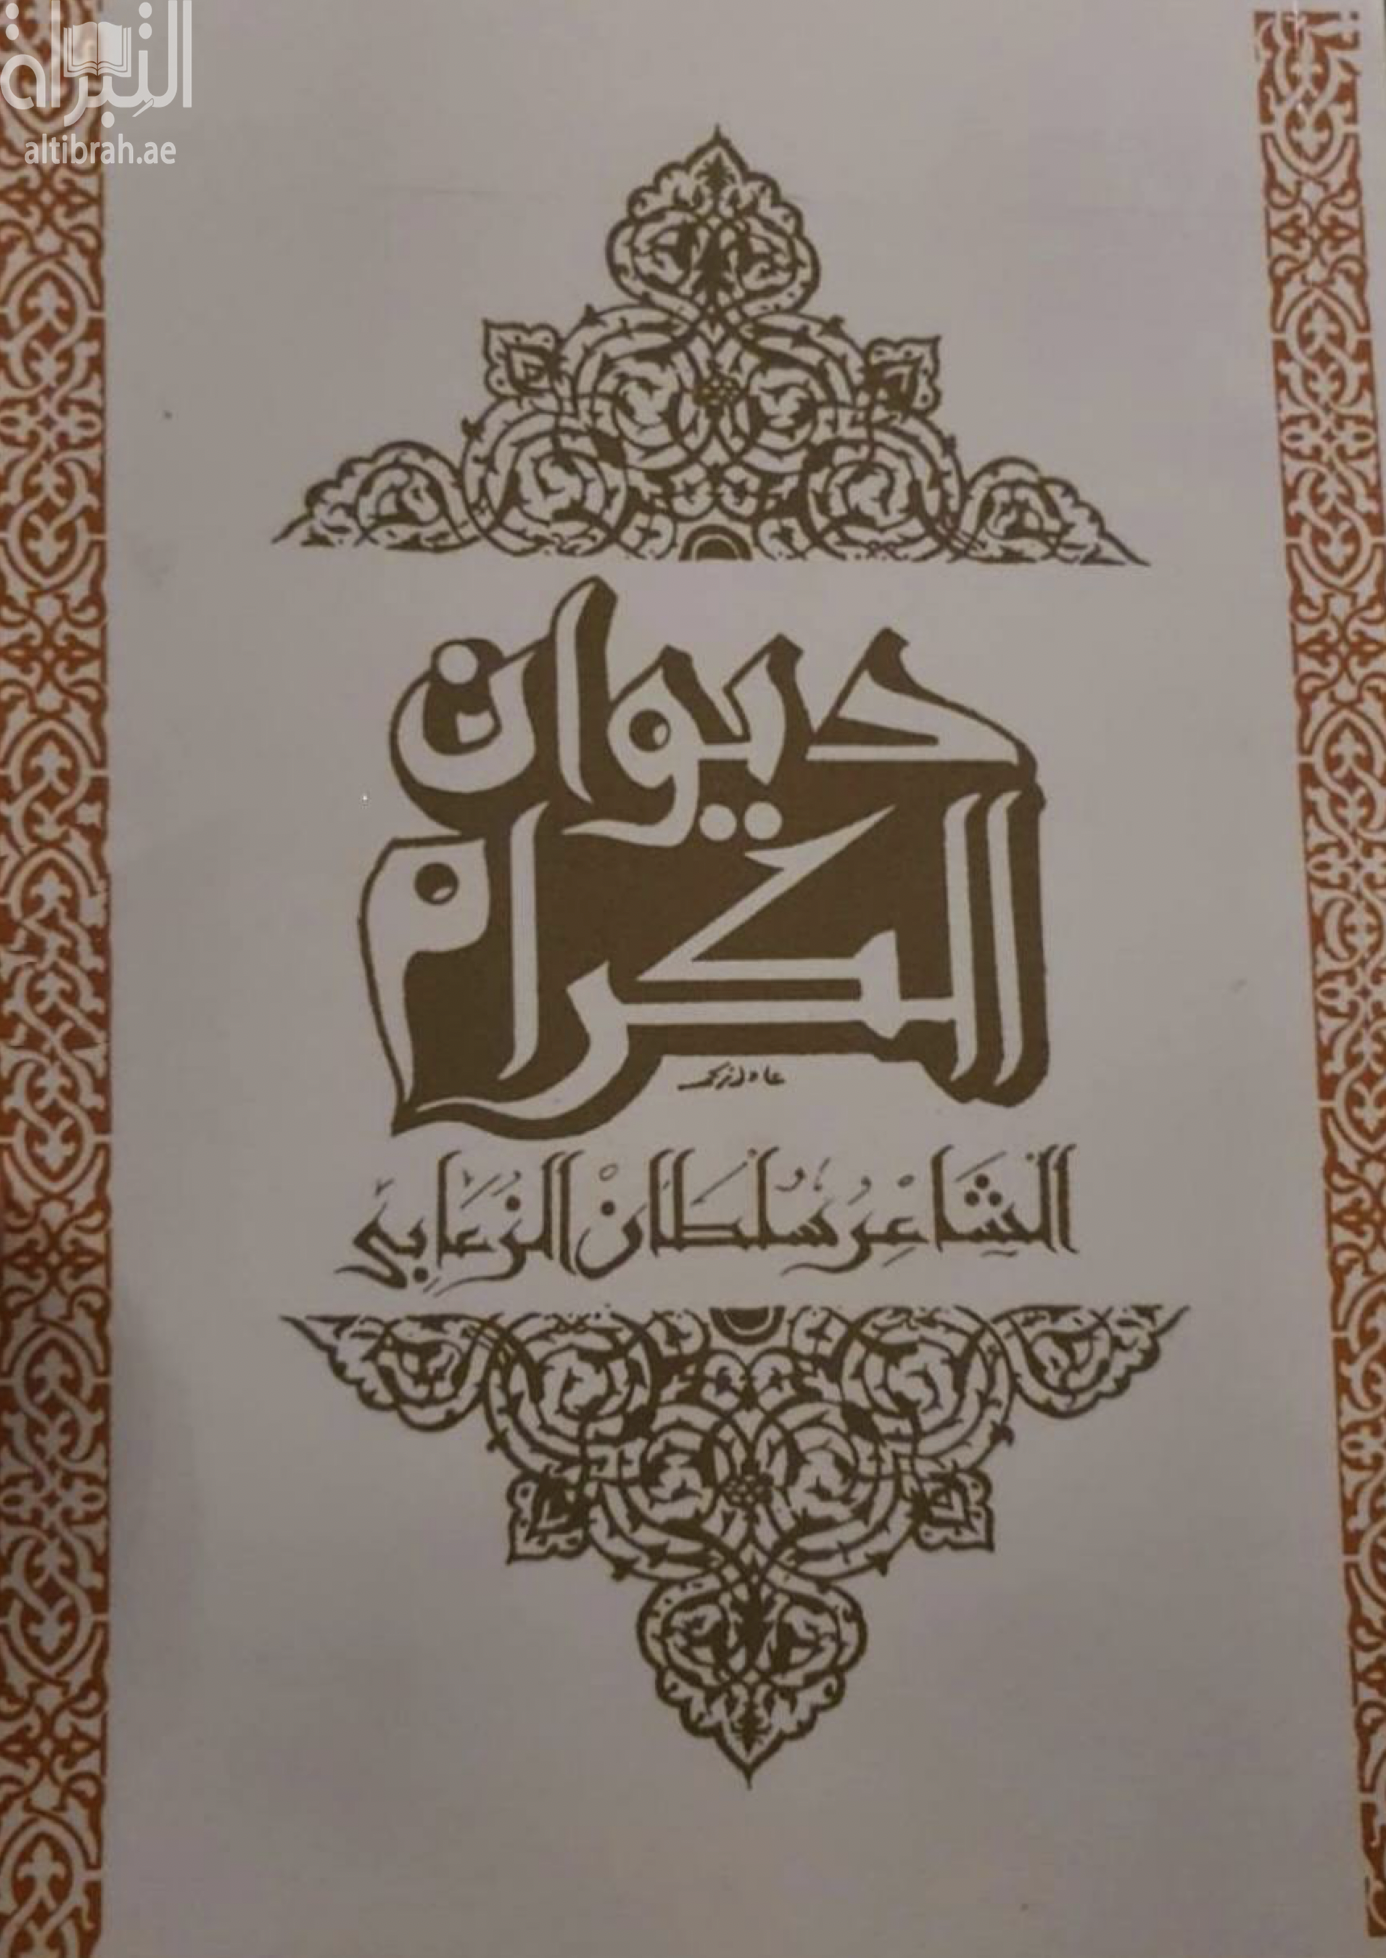 التبراة
altibrah.ae
ديوان
الكرام
الشَاعِرُ سُلطَانْ الزَعَابي